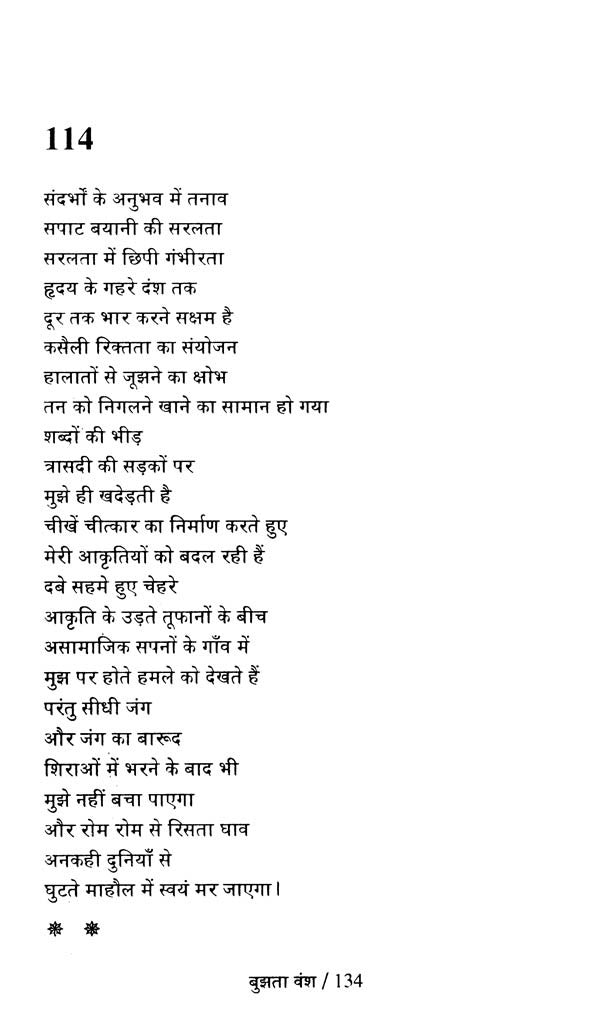 114
संदर्भों के अनुभव में तनाव
सपाट बयानी की सरलता
सरलता में छिपी गंभीरता
हृदय के गहरे दंश तक
दूर तक भार करने सक्षम है
कसैली रिक्तता का संयोजन
हालातों से जूझने का क्षोभ
तन को निगलने खाने का सामान हो गया
शब्दों की भीड़
त्रासदी की सड़कों पर
मुझे ही खदेड़ती है
चीखें चीत्कार का निर्माण करते हुए
मेरी आकृतियों को बदल रही हैं
दबे सहमे हुए चेहरे
आकृति के उड़ते तूफानों के बीच
असामाजिक सपनों के गाँव में
मुझ पर होते हमले को देखते हैं
परंतु सीधी जंग
और जंग का बारूद
शिराओं में भरने के बाद भी
मुझे नहीं बचा पाएगा
और रोम रोम से रिसता घाव
अनकही दुनियाँ से
घुटते माहौल में स्वयं मर जाएगा।
बुझता वंश / 134